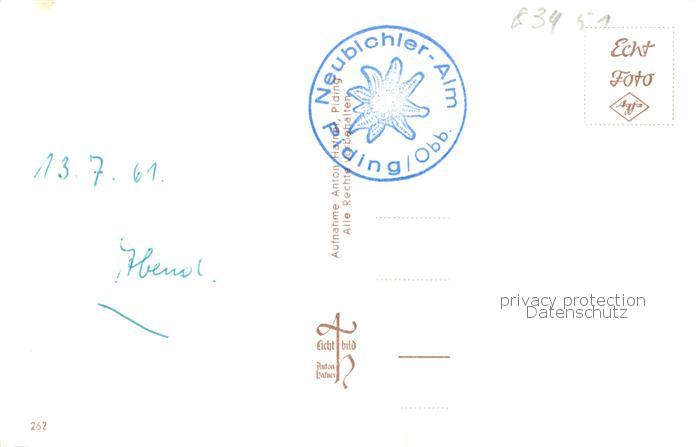 Neubichler-Alm
Piding/Obb.
Echt
Foto
Agfa
13.7.61.
Abend.
Aufnahme Anton Hafner, Piding
Alle Rechte vorbehalten
privacy protection
Datenschutz
Licht bild
Anton
Hafner
262